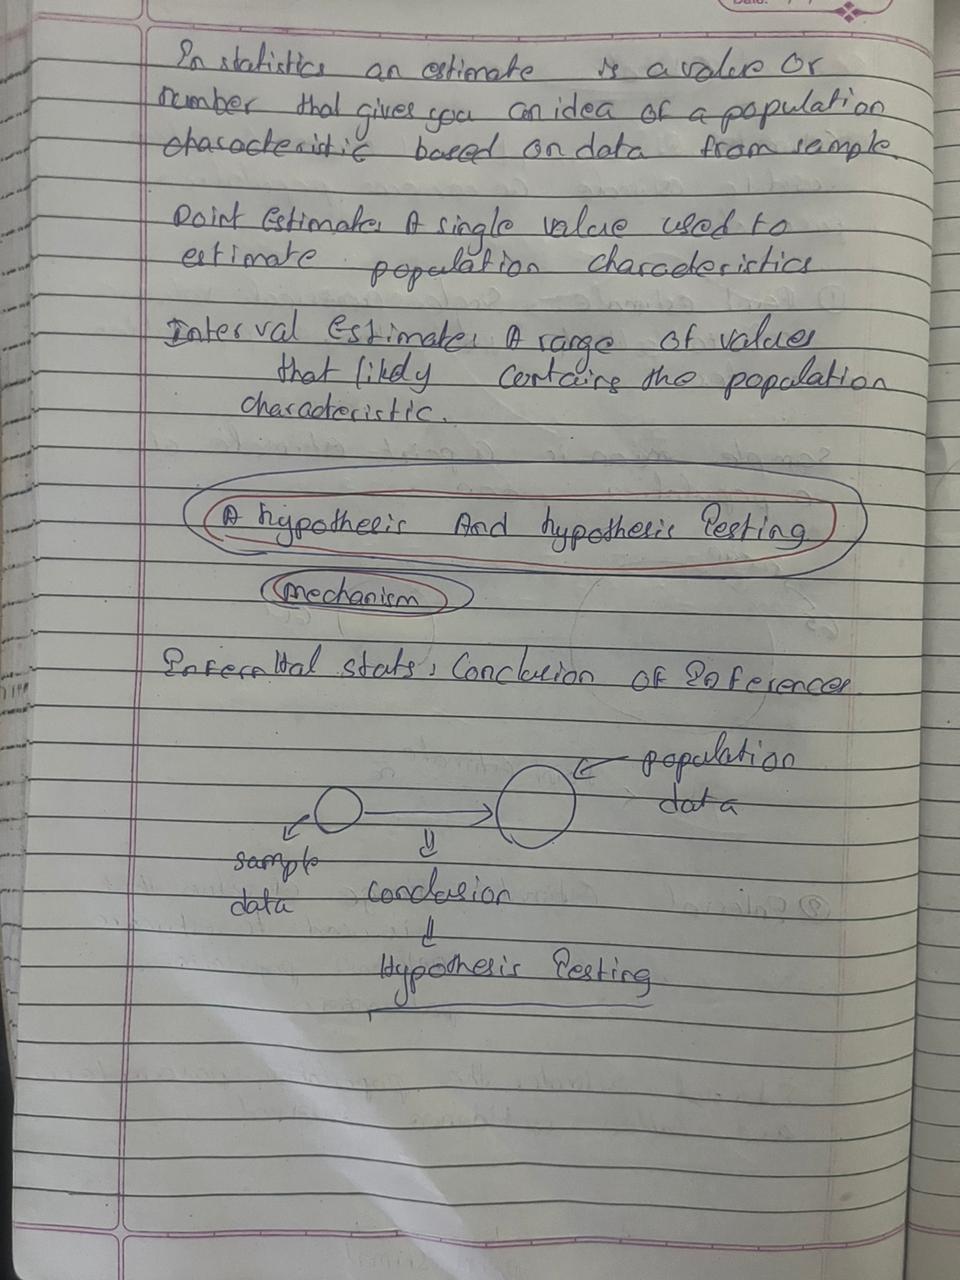 In statistics an estimate is a value or
number that gives you an idea of a population
characteristic based on data from sample.
Point Estimate: A single value used to
estimate population characteristics
Interval Estimate: A range of values
that likely contains the population
characteristic.
A hypothesis And hypothesis Testing
mechanism
Inferential stats: Conclusion of Inferences
population
data
sample
data
conclusion
Hypothesis Testing